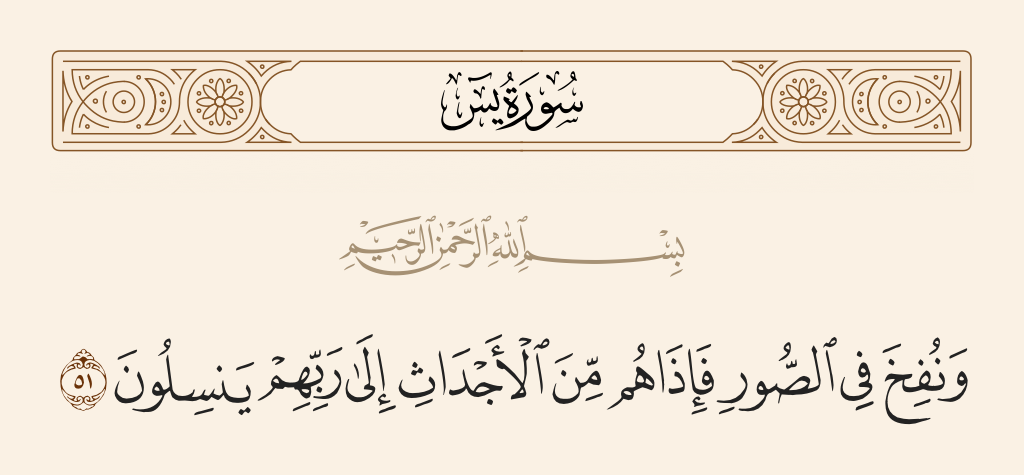 سُورَةُ يسٓ
بِسْمِ ٱللَّهِ ٱلرَّحْمَٰنِ ٱلرَّحِيمِ
وَنُفِخَ فِى ٱلصُّورِ فَإِذَا هُم مِّنَ ٱلْأَجْدَاثِ إِلَىٰ رَبِّهِمْ يَنسِلُونَ ٥١